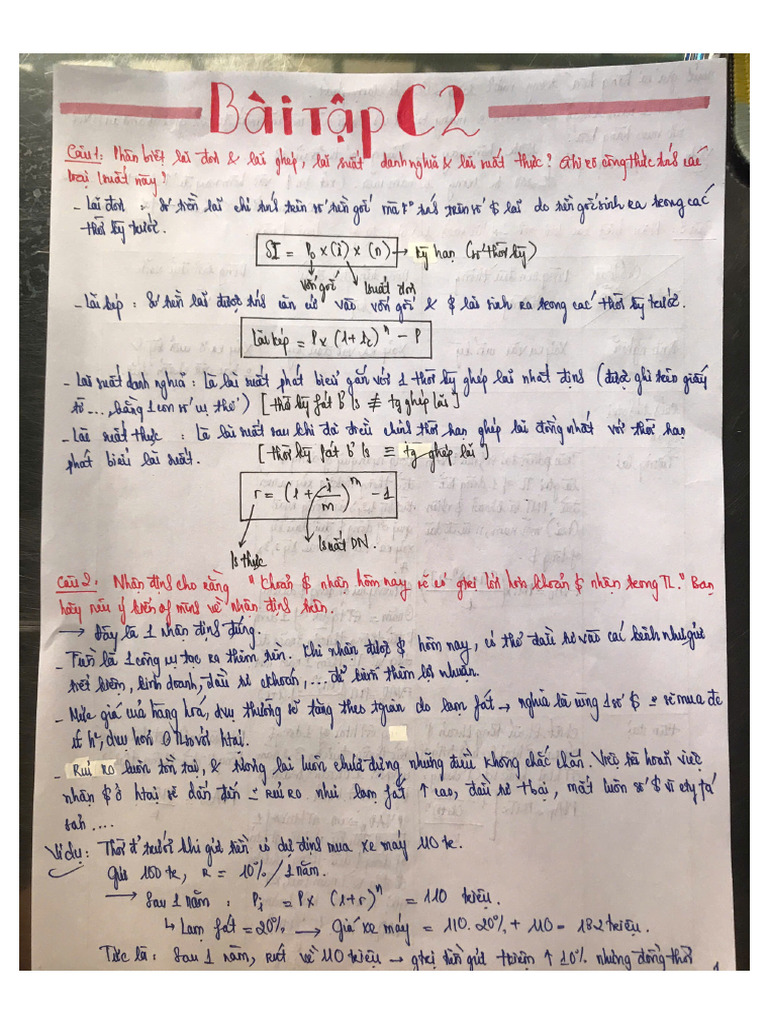 Bài tập C2
Câu 1: Phân biệt lãi đơn & lãi ghép, lãi suất danh nghĩa & lãi suất thực? Ghi rõ công thức tính các
loại lsuất này?
- Lãi đơn : Số tiền lãi chỉ tính trên số tiền gốc mà k° tính trên số $ lãi do tiền gốc sinh ra trong các
thời kỳ trước.
SI = P₀ × (i) × (n) → kỳ hạn (số thời kỳ)
vốn gốc lsuất đơn
- Lãi kép : Số tiền lãi được tính căn cứ vào vốn gốc & $ lãi sinh ra trong các thời kỳ trước.
Lãi kép = P × (1+ i)ⁿ - P
- Lãi suất danh nghĩa : Là lãi suất phát biểu gắn với 1 thời kỳ ghép lãi nhất định (được ghi trên giấy
tờ ..., bằng 1 con số cụ thể) [thời kỳ fát b² ls ≢ tg ghép lãi]
- Lãi suất thực : Là lãi suất sau khi đã điều chỉnh thời hạn ghép lãi đồng nhất với thời hạn
phát biểu lãi suất. [thời kỳ fát b² ls ≡ tg ghép lãi]
r = (1 + i/m)ᵐ - 1
ls thực lsuất DN.
Câu 2: Nhận định cho rằng "Khoản $ nhận hôm nay sẽ có gtrị lớn hơn khoản $ nhận trong TL." Bạn
hãy nêu ý kiến of mình về nhận định trên.
→ Đây là 1 nhận định đúng.
- Tiền là 1 công cụ tạo ra thêm tiền. Khi nhận được $ hôm nay, có thể đầu tư vào các kênh như gửi
tiết kiệm, kinh doanh, đầu tư ckhoán, ... để kiếm thêm lợi nhuận.
- Mức giá của hàng hoá, dvụ thường sẽ tăng theo tgian do lạm fát → nghĩa là cùng 1 số $ sẽ mua đc
ít h², dvụ hơn TL so với htại.
- Rủi ro luôn tồn tại, & tương lai luôn chứa đựng những điều không chắc chắn. Việc trì hoãn việc
nhận $ ở htại sẽ dẫn đến rủi ro như lạm fát ↑ cao, đầu tư thbại, mất luôn số $ vì cty fá
sản ....
Ví dụ : Thời đ² trước khi gửi tiền có dự định mua xe máy 110 tr.
Gửi 100 tr, R = 10%/1 năm.
→ Sau 1 năm : P₁ = P × (1+r)ⁿ = 110 triệu.
↳ Lạm fát = 20% → Giá xe máy = 110. 20% + 110 = 132 triệu.
Tức là : Sau 1 năm, rút về 110 triệu → gtrị tiền gửi ↑ 10% nhưng đồng thời